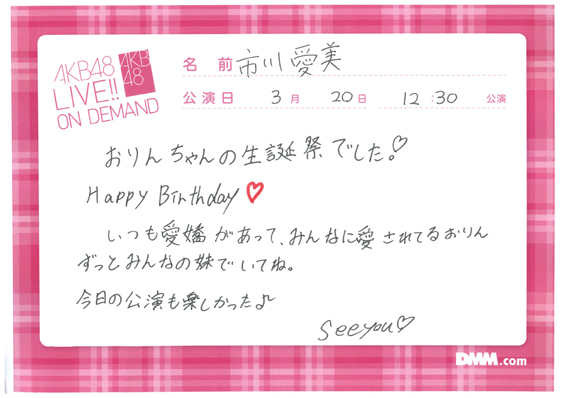 AKB48
LIVE!!
ON DEMAND
AKB
48
名 前 市川愛美
公演日 3月 20日 12:30 公演
おりんちゃんの生誕祭でした。♡
Happy Birthday♡
いつも愛嬌があって、みんなに愛されてるおりん
ずっとみんなの妹でいてね。
今日の公演も楽しかった♪
see you♡
DMM.com